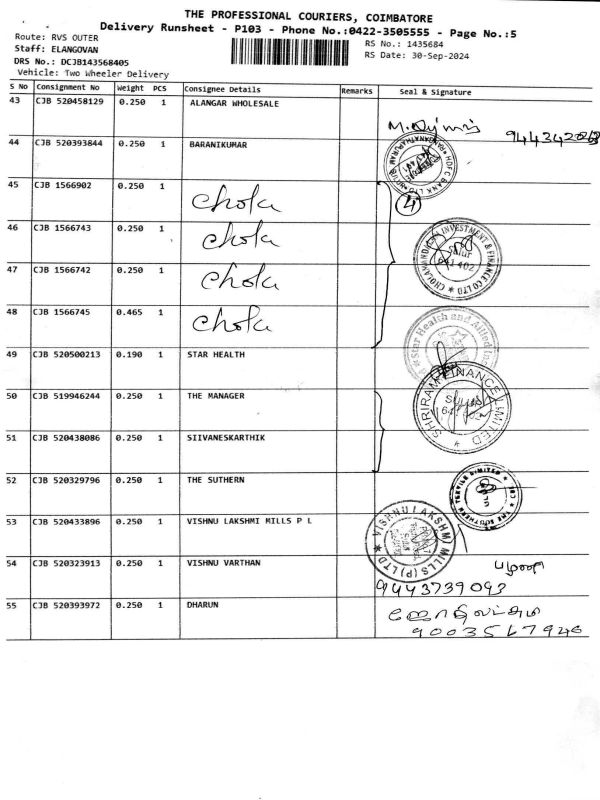 THE PROFESSIONAL COURIERS, COIMBATORE
Delivery Runsheet - P103 - Phone No.:0422-3505555 - Page No.:5
Route: RVS OUTER
RS No.: 1435684
Staff: ELANGOVAN
RS Date: 30-Sep-2024
DRS No.: DCJB143568405
Vehicle: Two Wheeler Delivery
S No Consignment No Weight PCS Consignee Details Remarks Seal & Signature
43 CJB 520458129 0.250 1 ALANGAR WHOLESALE
44 CJB 520393844 0.250 1 BARANIKUMAR
HDFC BANK LTD
45 CJB 1566902 0.250 1 Chola
4
46 CJB 1566743 0.250 1 Chola
CHOLAMANDALAM INVESTMENT & FINANCE CO LTD
Sulur
641 402
47 CJB 1566742 0.250 1 Chola
48 CJB 1566745 0.465 1 Chola
Star Health and Allied Ins
49 CJB 520500213 0.190 1 STAR HEALTH
50 CJB 519946244 0.250 1 THE MANAGER
SHRIRAM FINANCE LIMITED
51 CJB 520438086 0.250 1 SIIVANESKARTHIK
52 CJB 520329796 0.250 1 THE SUTHERN
THE SOUTHERN TEXTILE LIMITED
53 CJB 520433896 0.250 1 VISHNU LAKSHMI MILLS P L
VISHNU LAKSHMI MILLS (P) LTD
54 CJB 520323913 0.250 1 VISHNU VARTHAN
9443739093
55 CJB 520393972 0.250 1 DHARUN
9003567946